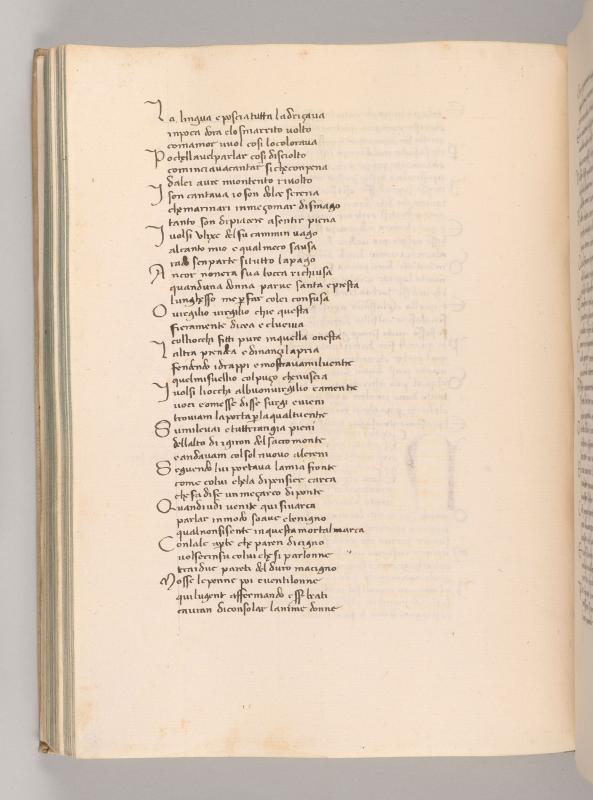 La lingua e poscia tutta la driçava
inpoca dora elo smarrito volto
comamor vuol cosi lo colorava
Po chellavel parlar cosi disciolto
cominciava cantar si checonpena
dalei aure mio ntento rivolto
Io son cantava io son dolce serena
che marinari inmeçomar dismago
tanto son di piacere a sentir piena
Io volsi Ulixe del su cammin vago
al canto mio e qual meco sausa
rado senparte si tutto lapago
Ancor nonera sua bocca richiusa
quanduna donna parve santa e presta
lunghesso me p far colei confusa
O virgilio virgilio chie questa
fieramente dicea e eluenia
colliocchi fitti pure inquella onesta
Laltra prendea e dinançi lapria
fendendo idrappi e mostravamilventre
quel misueglio colpuço chenuscia
Io volsi liocchi albuonvirgilio e amentre
voci to messe disse surgi eueni
troviam laporta p laqualtuentre
Su mi levai e tutteran gia pieni
dellalto di igiron del sacro monte
e andavam col sol nuovo alereni
Seguendo lui portava la mia fronte
come colui chela di pensier carca
che fa dise un meçarco di ponte
Quandiudi venite qui sivarca
parlar inmodo soave e benigno
qual non si sente in questa mortal marca
Conlale apte che paren di cigno
volsecinsu colui che si parlonne
tra i due pareti del duro macigno
Mosse le penne poi e ventilonne
qui lugent affermando esser beati
cauran di consolar lanime donne